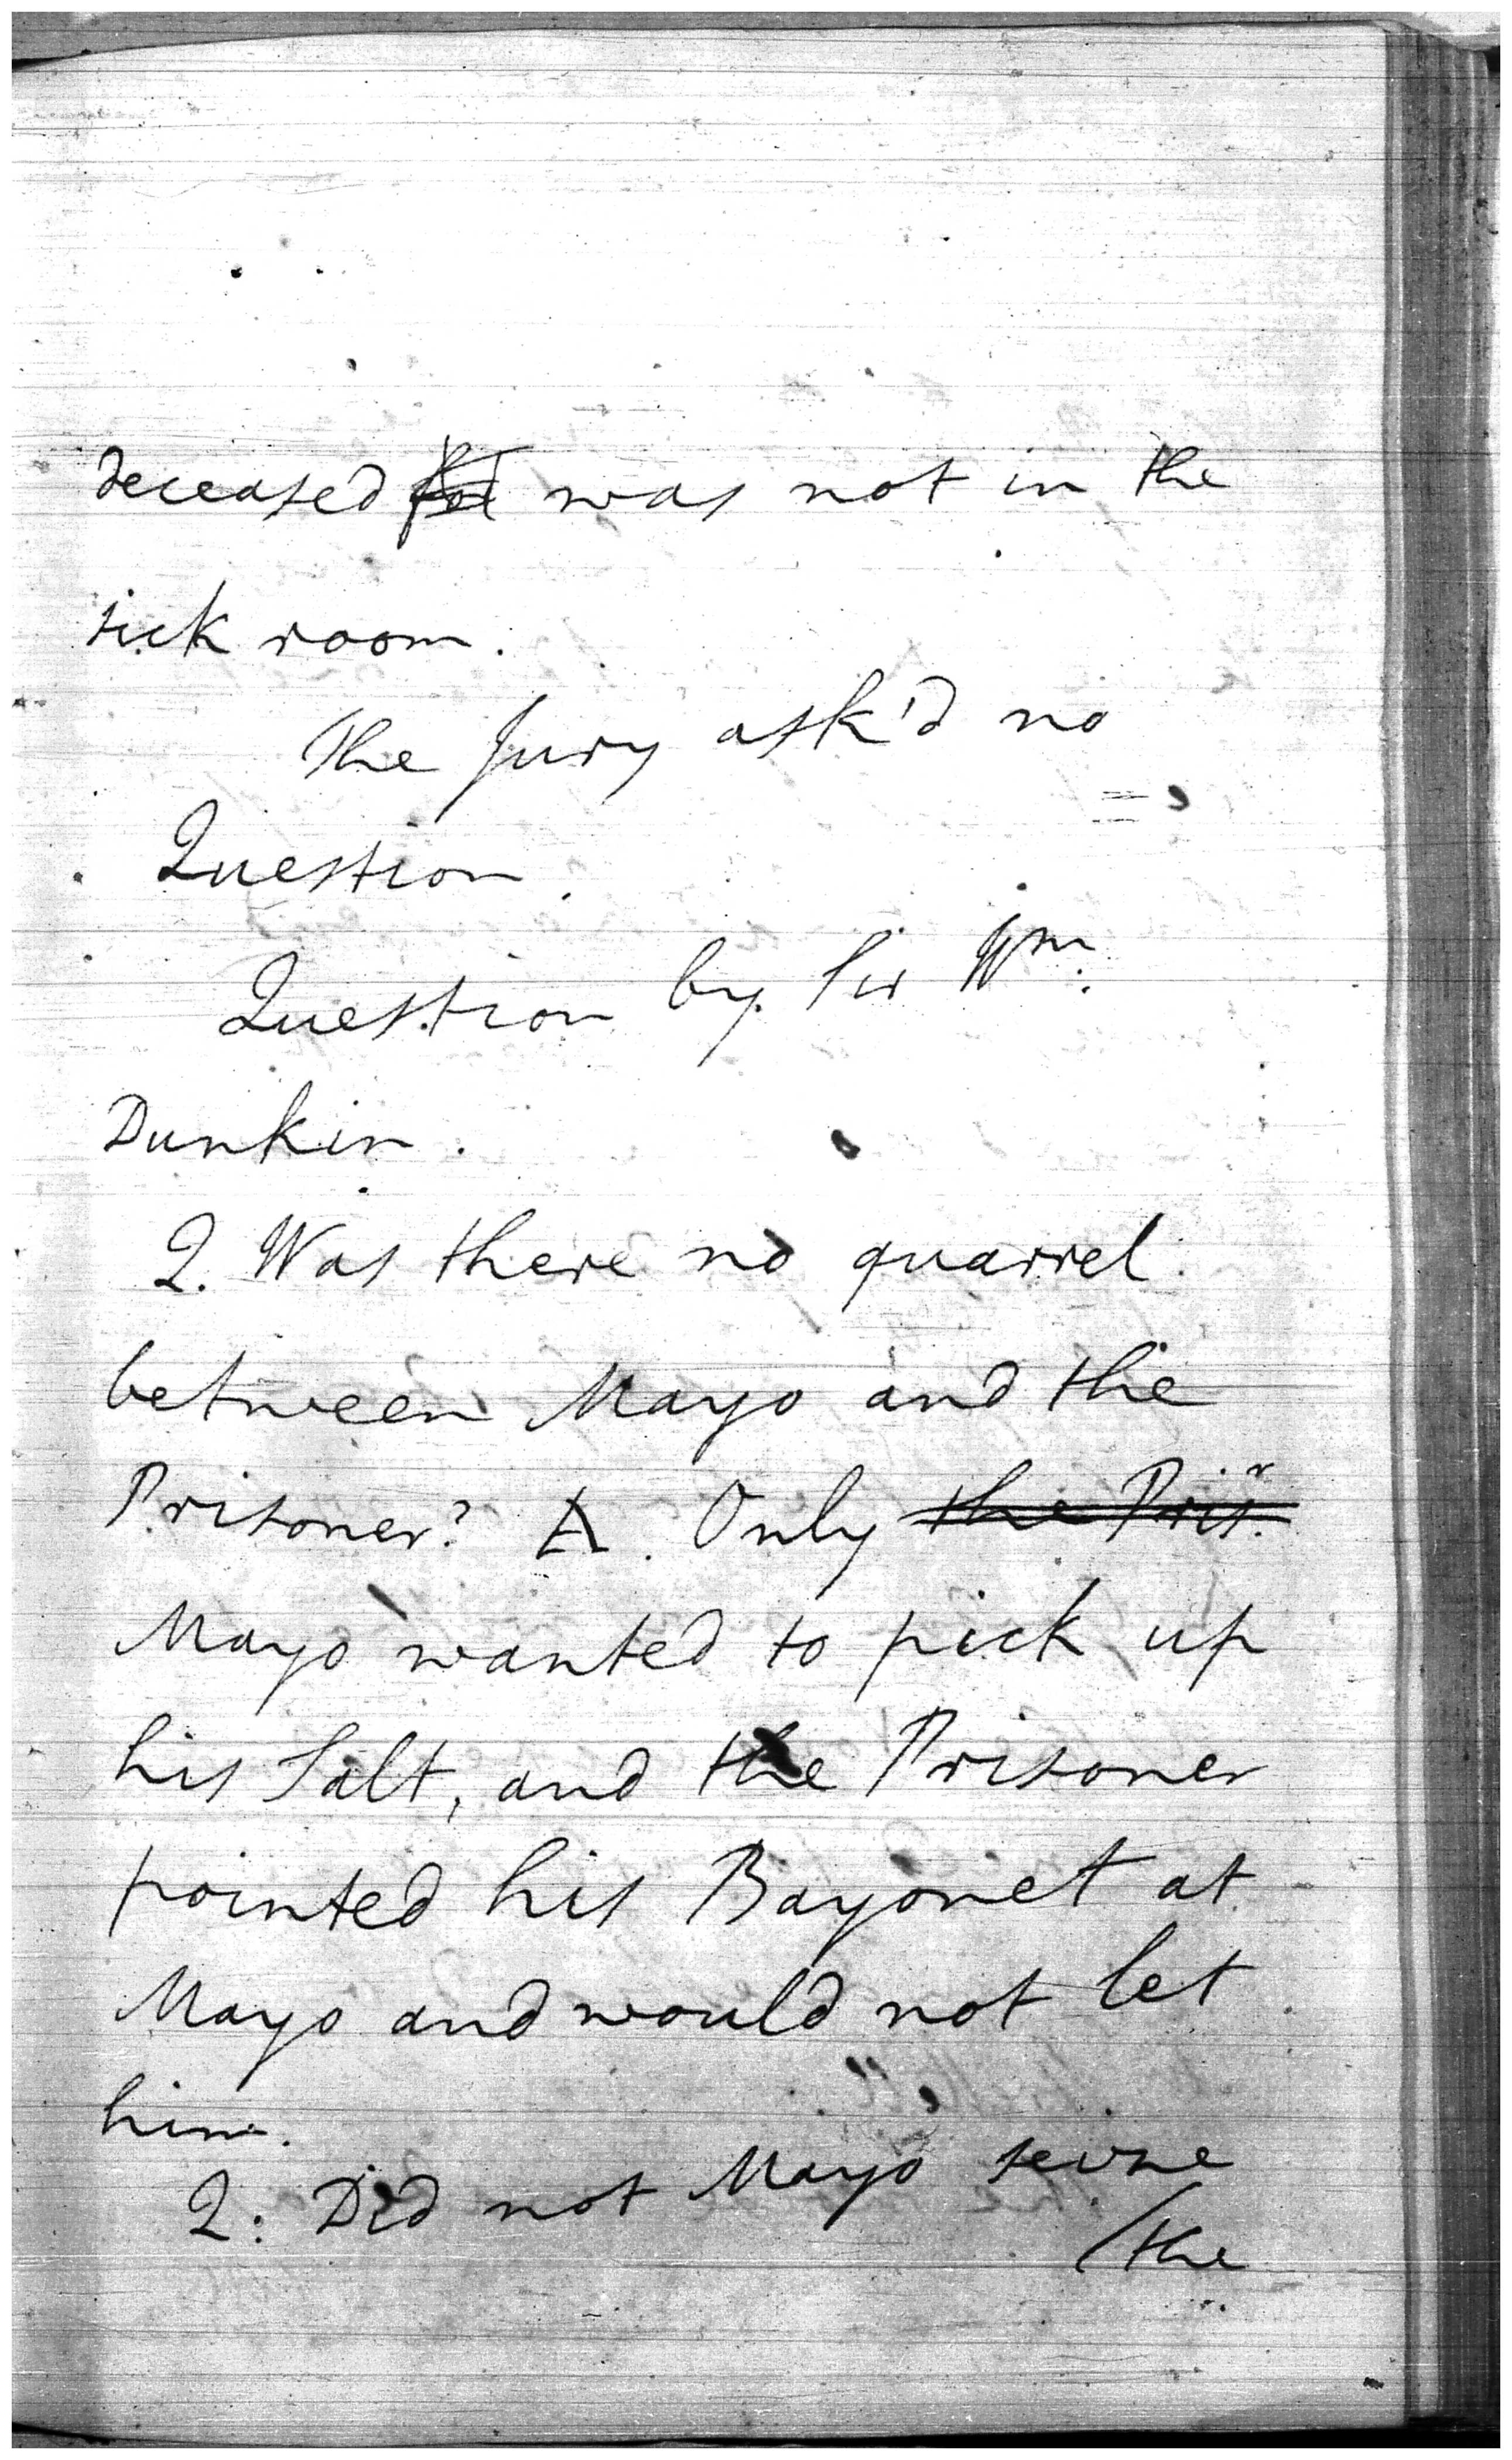 deceased was not in the
sick room.
The Jury ask'd no
Question.
Question by Sir Wm.
Dunkin.
Q. Was there no quarrel
between Mayo and the
Prisoner? A. Only the Prisr.
Mayo wanted to pick up
his Salt, and the Prisoner
pointed his Bayonet at
Mayo and would not let
him.
Q: Did not Mayo seize
/the